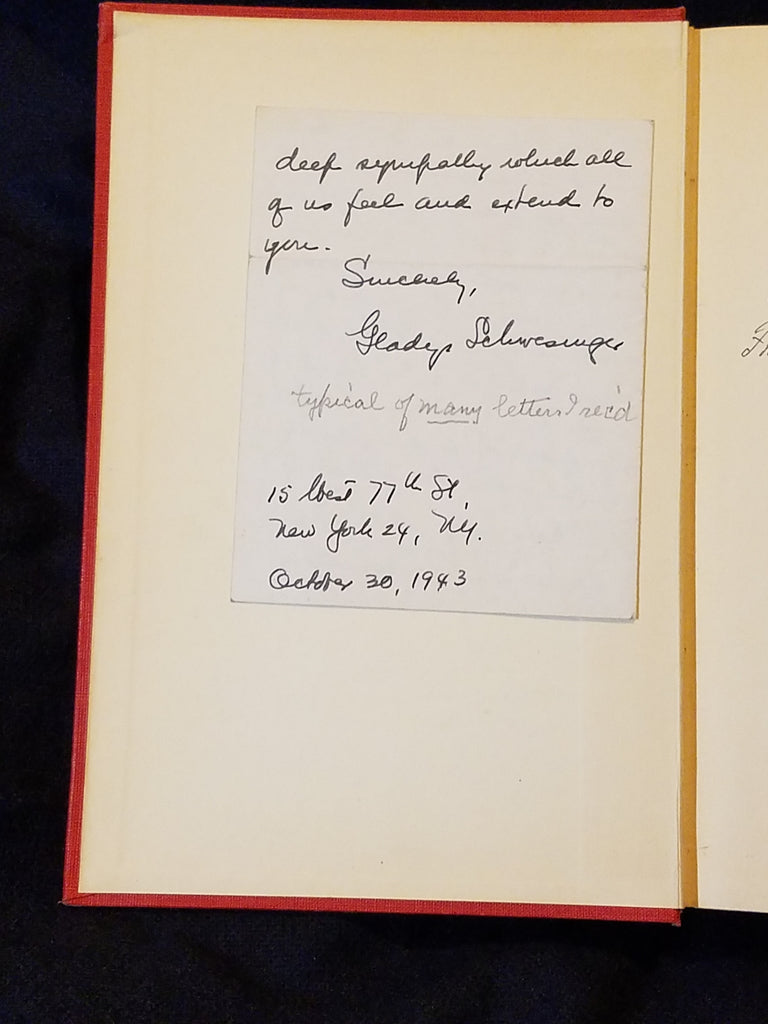 deep sympathy which all
of us feel and extend to
you.
Sincerely,
Gladys Schwesinger
typical of many letters I rec'd
15 West 77th St,
New York 24, N.Y.
October 30, 1943